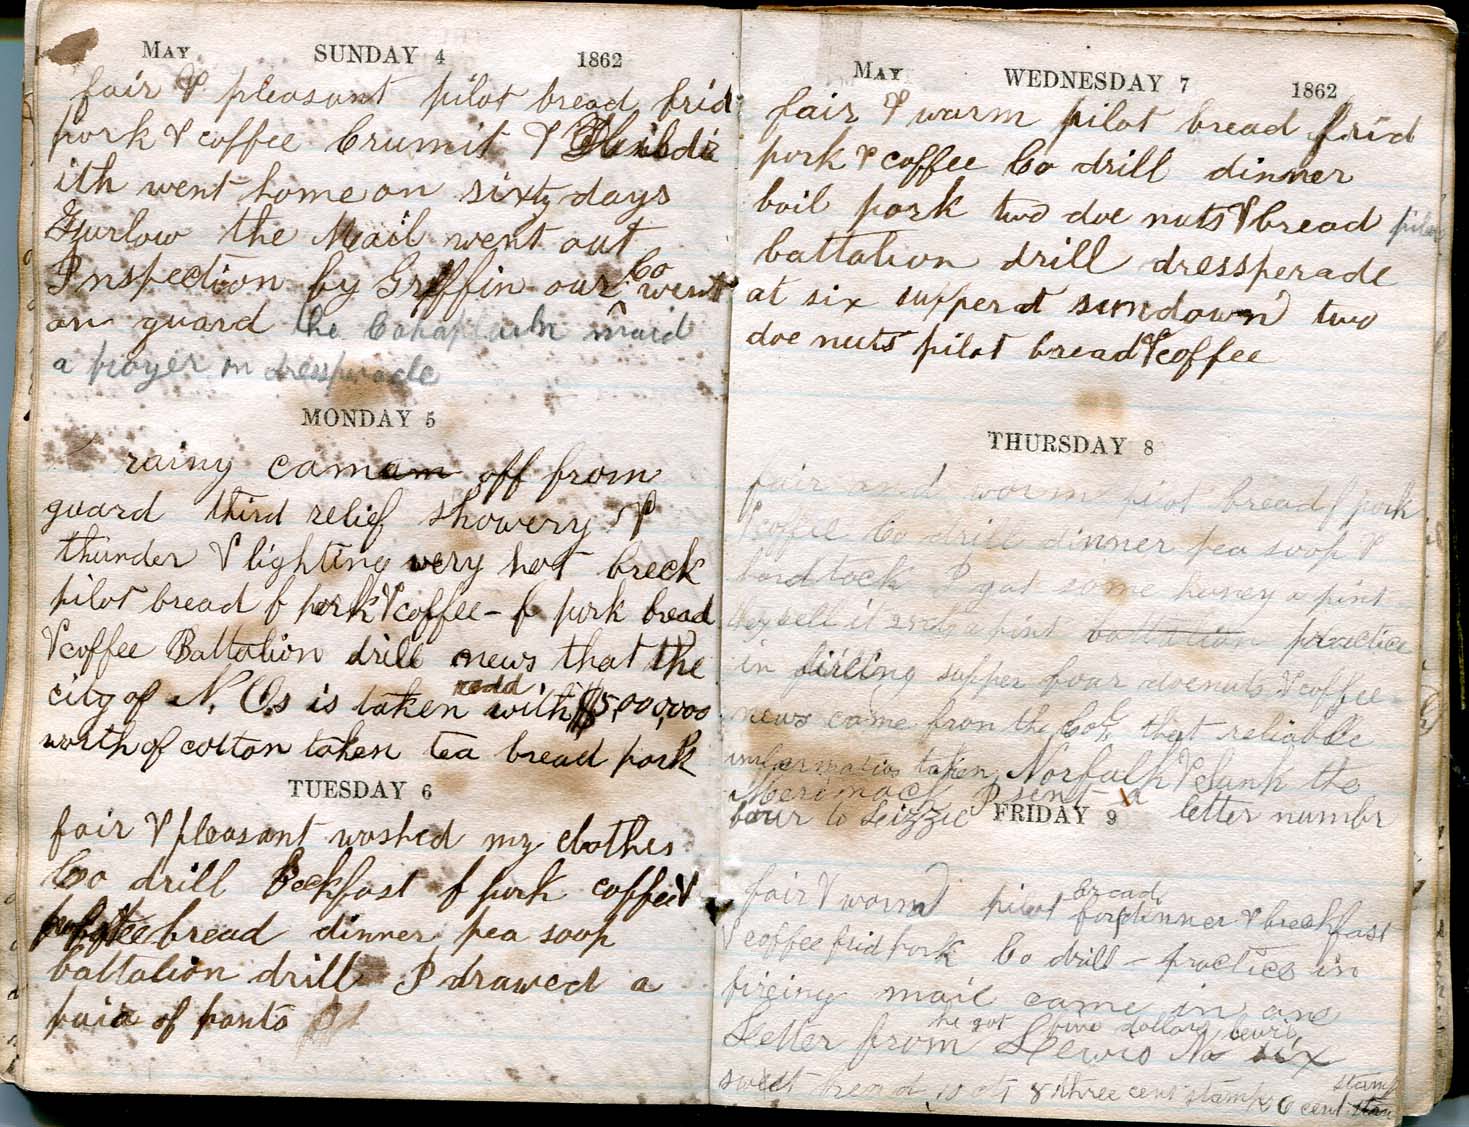 May SUNDAY 4 1862
fair & pleasant pilot bread frid
pork & coffee Crumit &
ith went home on sixty days
Furlow the Mail went out
Inspection by Griffin our Co went
on guard the maid
a prayer on dressperade
MONDAY 5
rainy cam am off from
guard third relief showery &
thunder & lighting very hot breck
pilot bread f pork & coffee - f pork bread
& coffee Battalion drill news that the
city of N. O.s is taken with $15,000,000
worth of cotton taken tea bread pork
TUESDAY 6
fair & pleasant washed my clothes
Co drill Beckfast f pork coffee &
bread dinner pea soop
battalion drill I drawed a
pair of pants
May WEDNESDAY 7 1862
fair & warm pilot bread frid
pork & coffee Co drill dinner
boil pork two doe nuts & bread pilot
battalion drill dressperade
at six supper at sundown two
doe nuts pilot bread & coffee
THURSDAY 8
fair and worm pilot bread f pork
& coffee Co drill dinner pea soop &
hardtack I got some honey a pint
they sell it 25 cts a pint battalion practice
in fireing supper four doenuts & coffee
news came from the Col. that reliable
taken Norfulk & Sunk the
Merimack I sent a letter numbr
four to Lizzie
FRIDAY 9
fair & warm pilot bread for dinner & breakfast
& coffee frid pork Co drill - practice in
fireing mail came in one
he got five dollars
Letter from Lewis No six
sweet bread 10 cts 8 three cent stamps 6 cent stamp